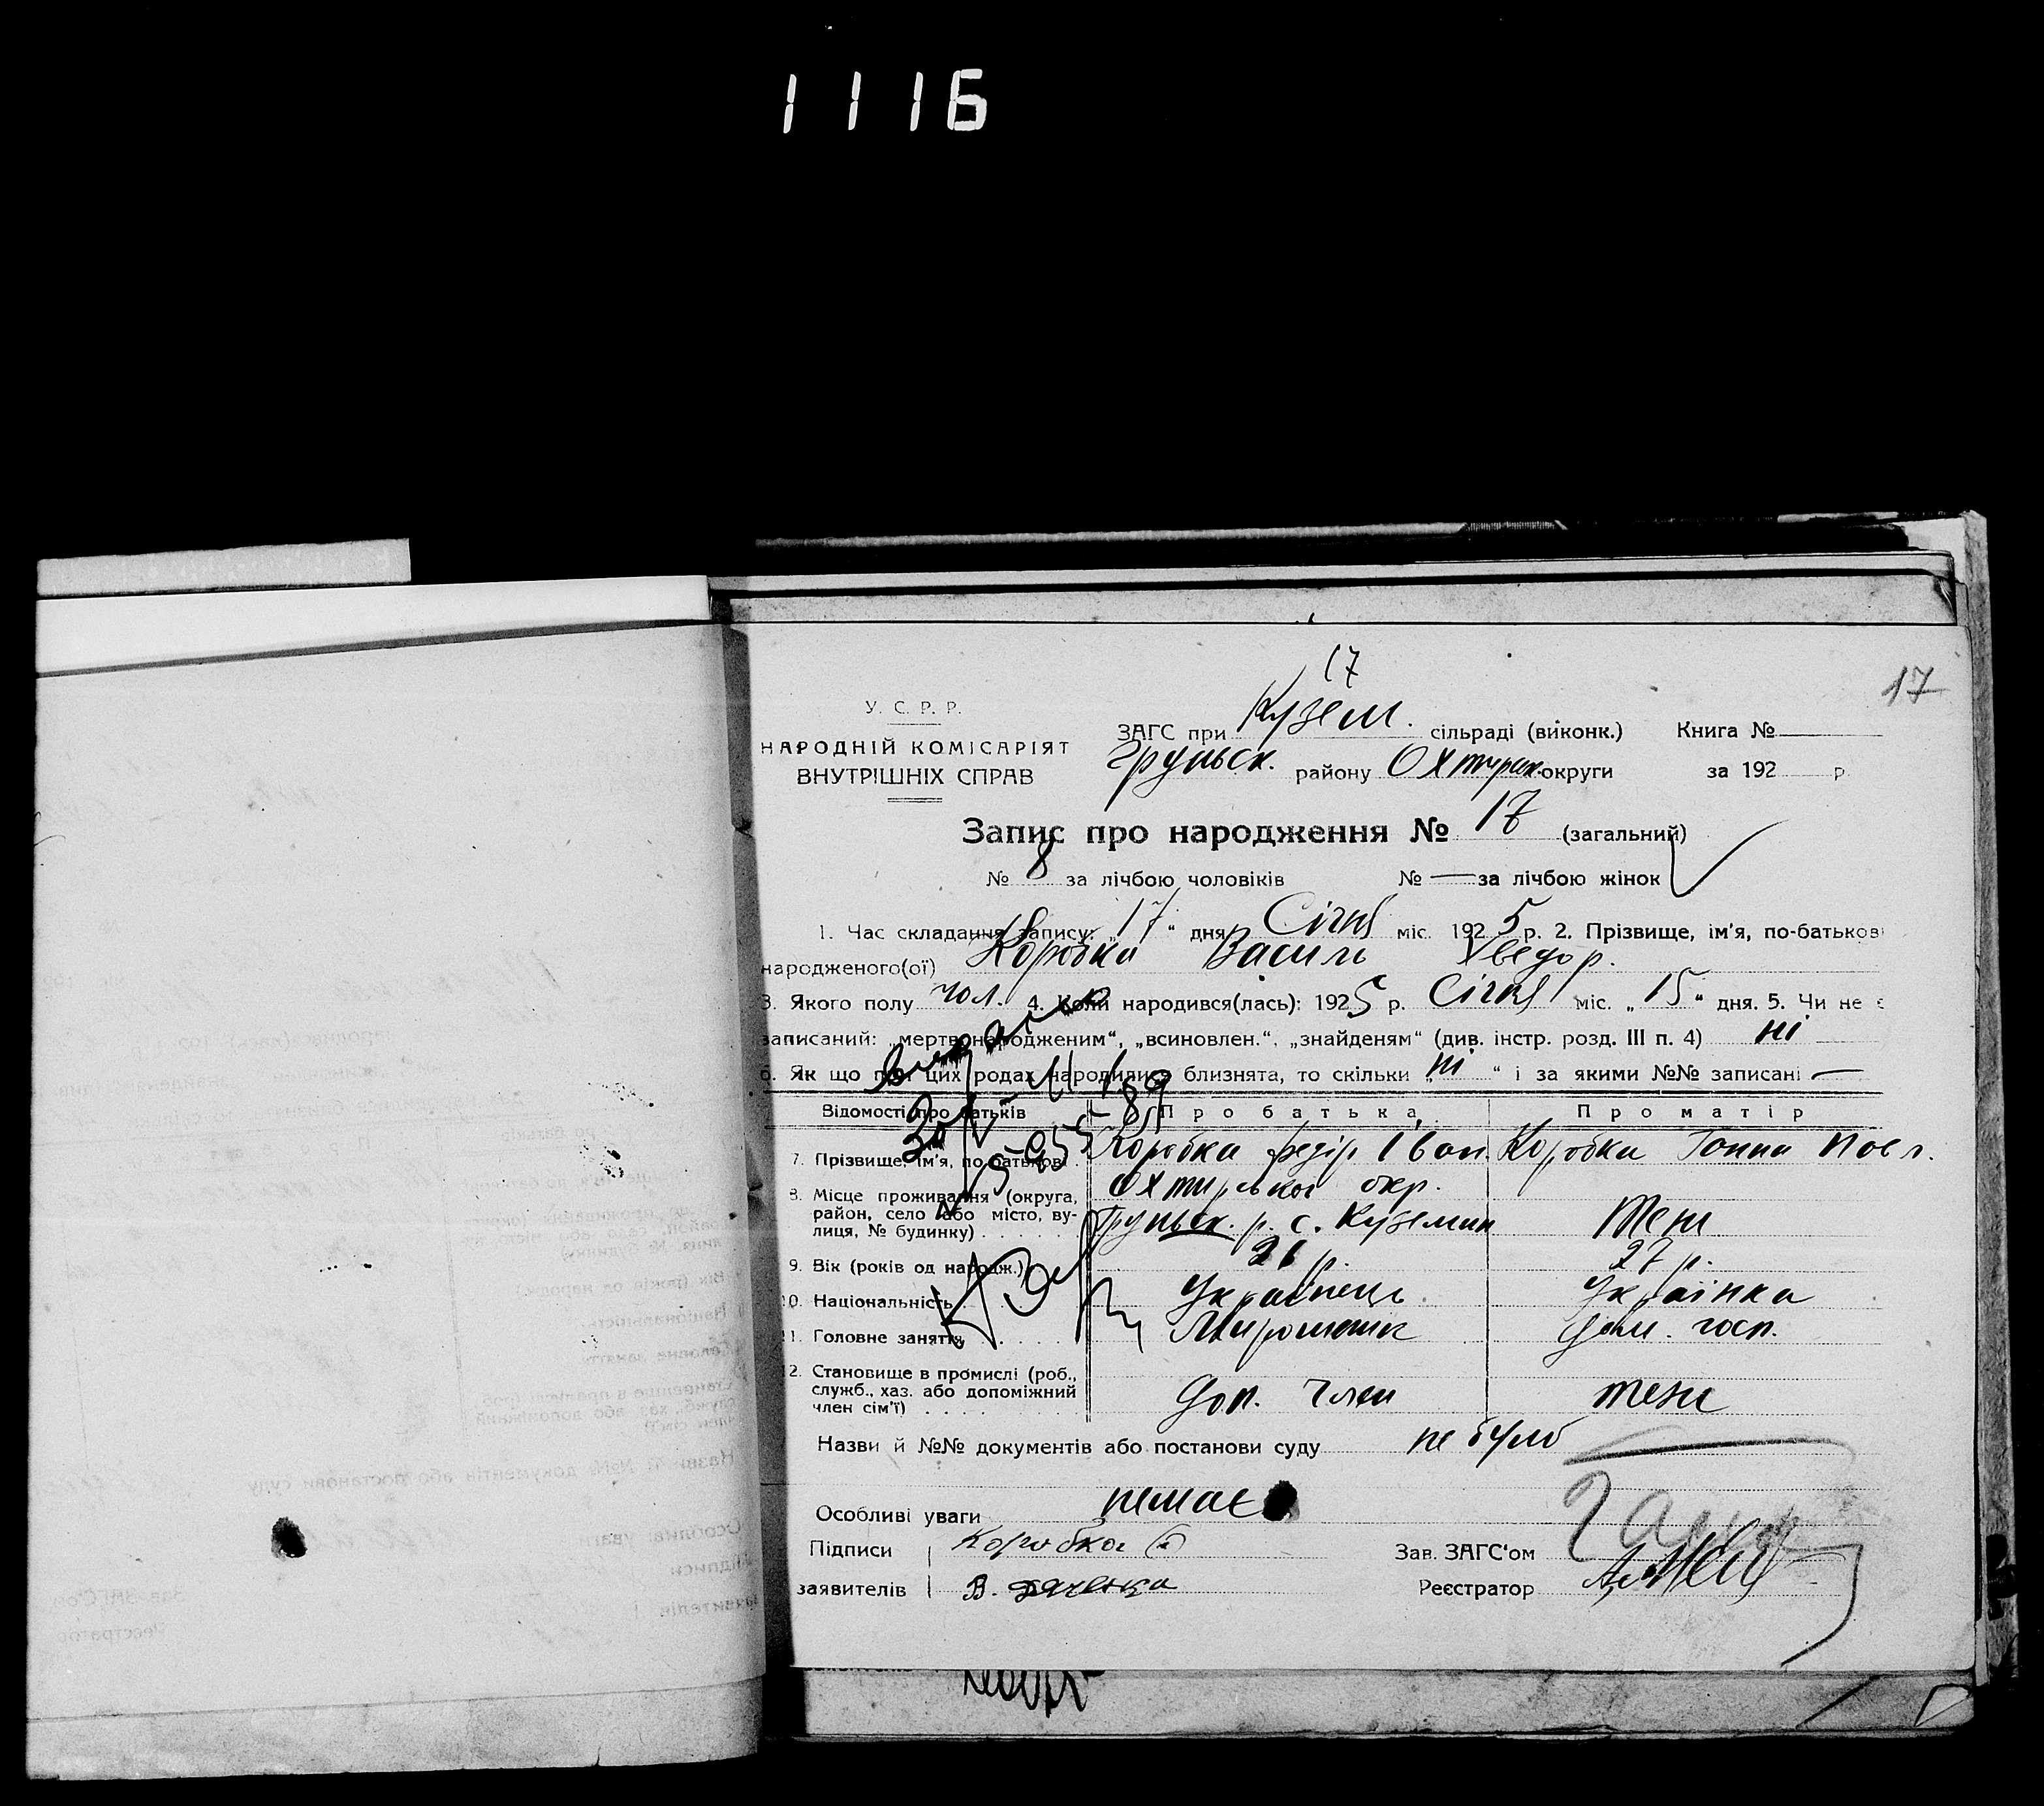 1116
17
17
У. С. Р. Р.
НАРОДНІЙ КОМІСАРІЯТ
ВНУТРІШНІХ СПРАВ
ЗАГС при Кузем. сільраді (виконк.) Книга №
Груньск. району Охтирск. округи за 192 р.
Запис про народження № 17 (загальний)
№ 8 за лічбою чоловіків № — за лічбою жінок
1. Час складання запису: „17“ дня Січня міс. 1925 р. 2. Прізвище, ім'я, по-батькові
народженого(ої) Коробка Василь Хведор.
3. Якого полу чол. 4. Коли народився(лась): 1925 р. Січня міс. „15“ дня. 5. Чи не є
записаний: „мертвонародженим“, „всиновлен.“, „знайденям“ (див. інстр. розд. III п. 4) ні
6. Як що при цих родах народилися близнята, то скільки „ні“ і за якими №№ записані —
Відомості про батьків Про батька Про матір
7. Прізвище, ім'я, по-батькові Коробка Федір Іван. Коробка Ганна Павл.
8. Місце проживання (округа, район, село або місто, вулиця, № будинку) Охтирської окр.
Груньск. р. с. Куземин Теж
9. Вік (років од народж.) р. 27 р.
10. Національність Українець Українка
11. Головне заняття Мирошник Дом. госп.
12. Становище в промислі (роб., служб., хаз. або допоміжний член сім'ї) Доп. член теж
Назви й №№ документів або постанови суду не було
Особливі уваги немає
Підписи Коробка
заявителів В. Дяченко
Зав. ЗАГС'ом
Реєстратор